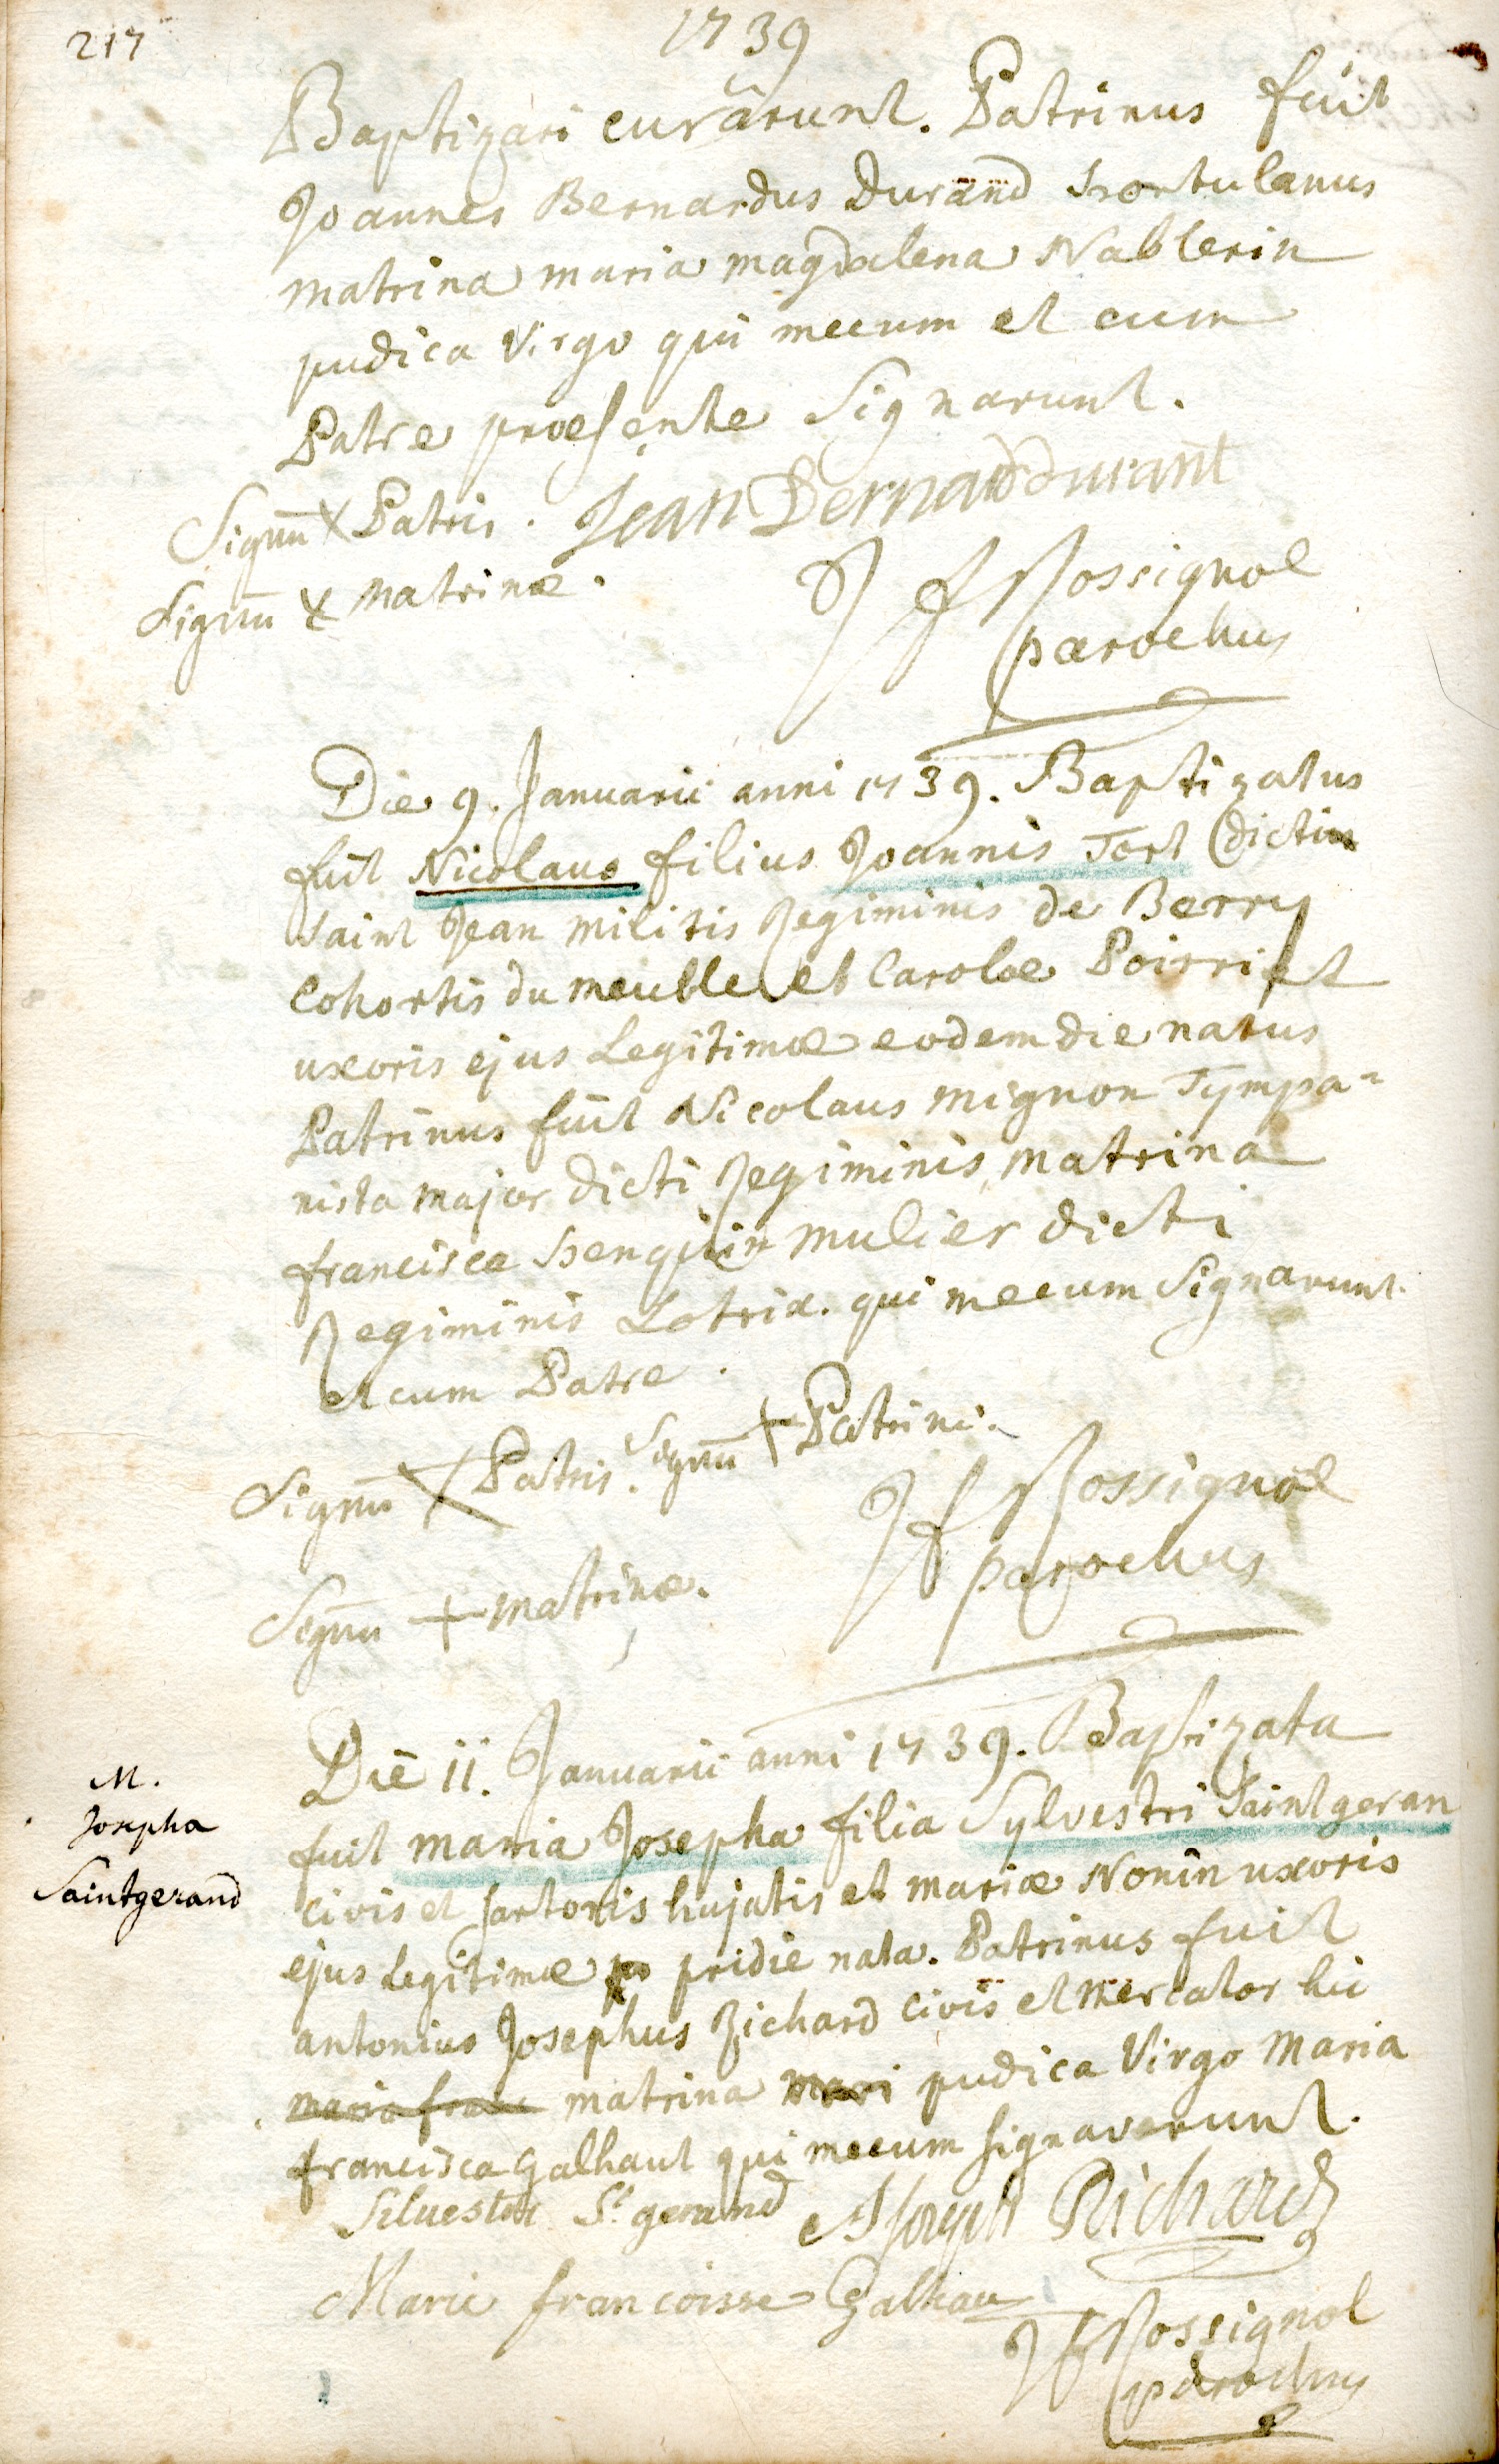 217
1739
Baptizari curarunt. Patrinus fuit
Joannes Bernardus Durand hortulanus
matrina maria magdalena Nablerin
pudica Virgo qui mecum et cum
Patre præsente Signarunt.
Signũ X Patris. Jean Bernard durant
Signũ X matrinæ.
J F Rossignol
parochus
Die 9. Januarii anni 1739. Baptizatus
fuit Nicolaus filius Joannis Tort dicti
saint Jean militis Regiminis de Berry
Cohortis du meuble et Carolæ Poirrist
uxoris ejus Legitimæ eodem die natus
Patrinus fuit Nicolaus mignon Tympa=
nista major dicti Regiminis, matrina
francisca henquin mulier dicti
Regiminis Lotrix. qui mecum Signarunt
et cum Patre.
Signũ X Patris. Signũ + Patrini.
J F Rossignol
parochus
Signũ + matrinæ.
Die 11. Januarii anni 1739. Baptizata
M.
Josepha
Saintgerand
fuit maria Josepha filia Sylvestri Saintgeran
civis et sartoris hujatis et mariæ Nonin uxoris
ejus Legitimæ pridie nata. Patrinus fuit
antonius Josephus Richard civis et mercator hic
maria franc matrina mari pudica Virgo Maria
francisca Galhaut qui mecum signaverunt.
Siluester St gerand AJoseph Richard
Marie francoisse Galhau
J F Rossignol
parochus